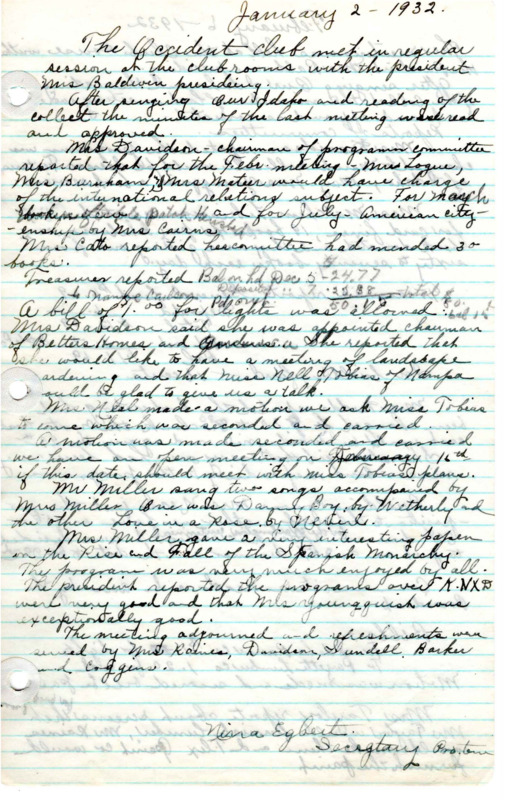 January 2 - 1932.
The Occident club met in regular
session at the club rooms with the president
Mrs Baldwin presiding.
After singing Our Idaho and reading of the
collect the minutes of the last meeting were read
and approved.
Mrs Davidson - chairman of programm committee
reported that for the Febr meeting - Mrs Logue,
Mrs Burnham, & Mrs Mateer would have charge
of the international relations subject. For March
and for July - American city-
-enship by Mrs Cairns.
Mrs Cato reported her committee had mended 30
books.
Treasurer reported Bal on hd Dec 5 - 24.77
A bill of 7.00 for lights was allowed.
Mrs Davidson said she was appointed chairman
of Betters Homes and She reported that
she would like to have a meeting of landscape
ardening and that Miss Nell Tobias of Nampa
would be glad to give us a talk.
Mrs. Neal made a motion we ask Miss Tobias
to come which was seconded and carried.
A motion was made seconded and carried
we have an open meeting on February
if this date should meet with Miss Tobias plans.
Mr Miller sang two songs accompanied by
Mrs Miller. One was Danny Boy by Wetherly and
the other Love in a Rose by Nevens.
Mrs Miller gave a very interesting paper
on the Rise and Fall of the Spanish Monarchy.
The program was very much enjoyed by all.
The president reported the programs over KNXD
were very good and that Mrs Youngquist was
exceptionally good.
The meeting adjourned and refreshments were
served by Mrs Raines, Davidson, Lundell, Barker
and Coggins.
Nina Egbert.
Secretary Pro. tem